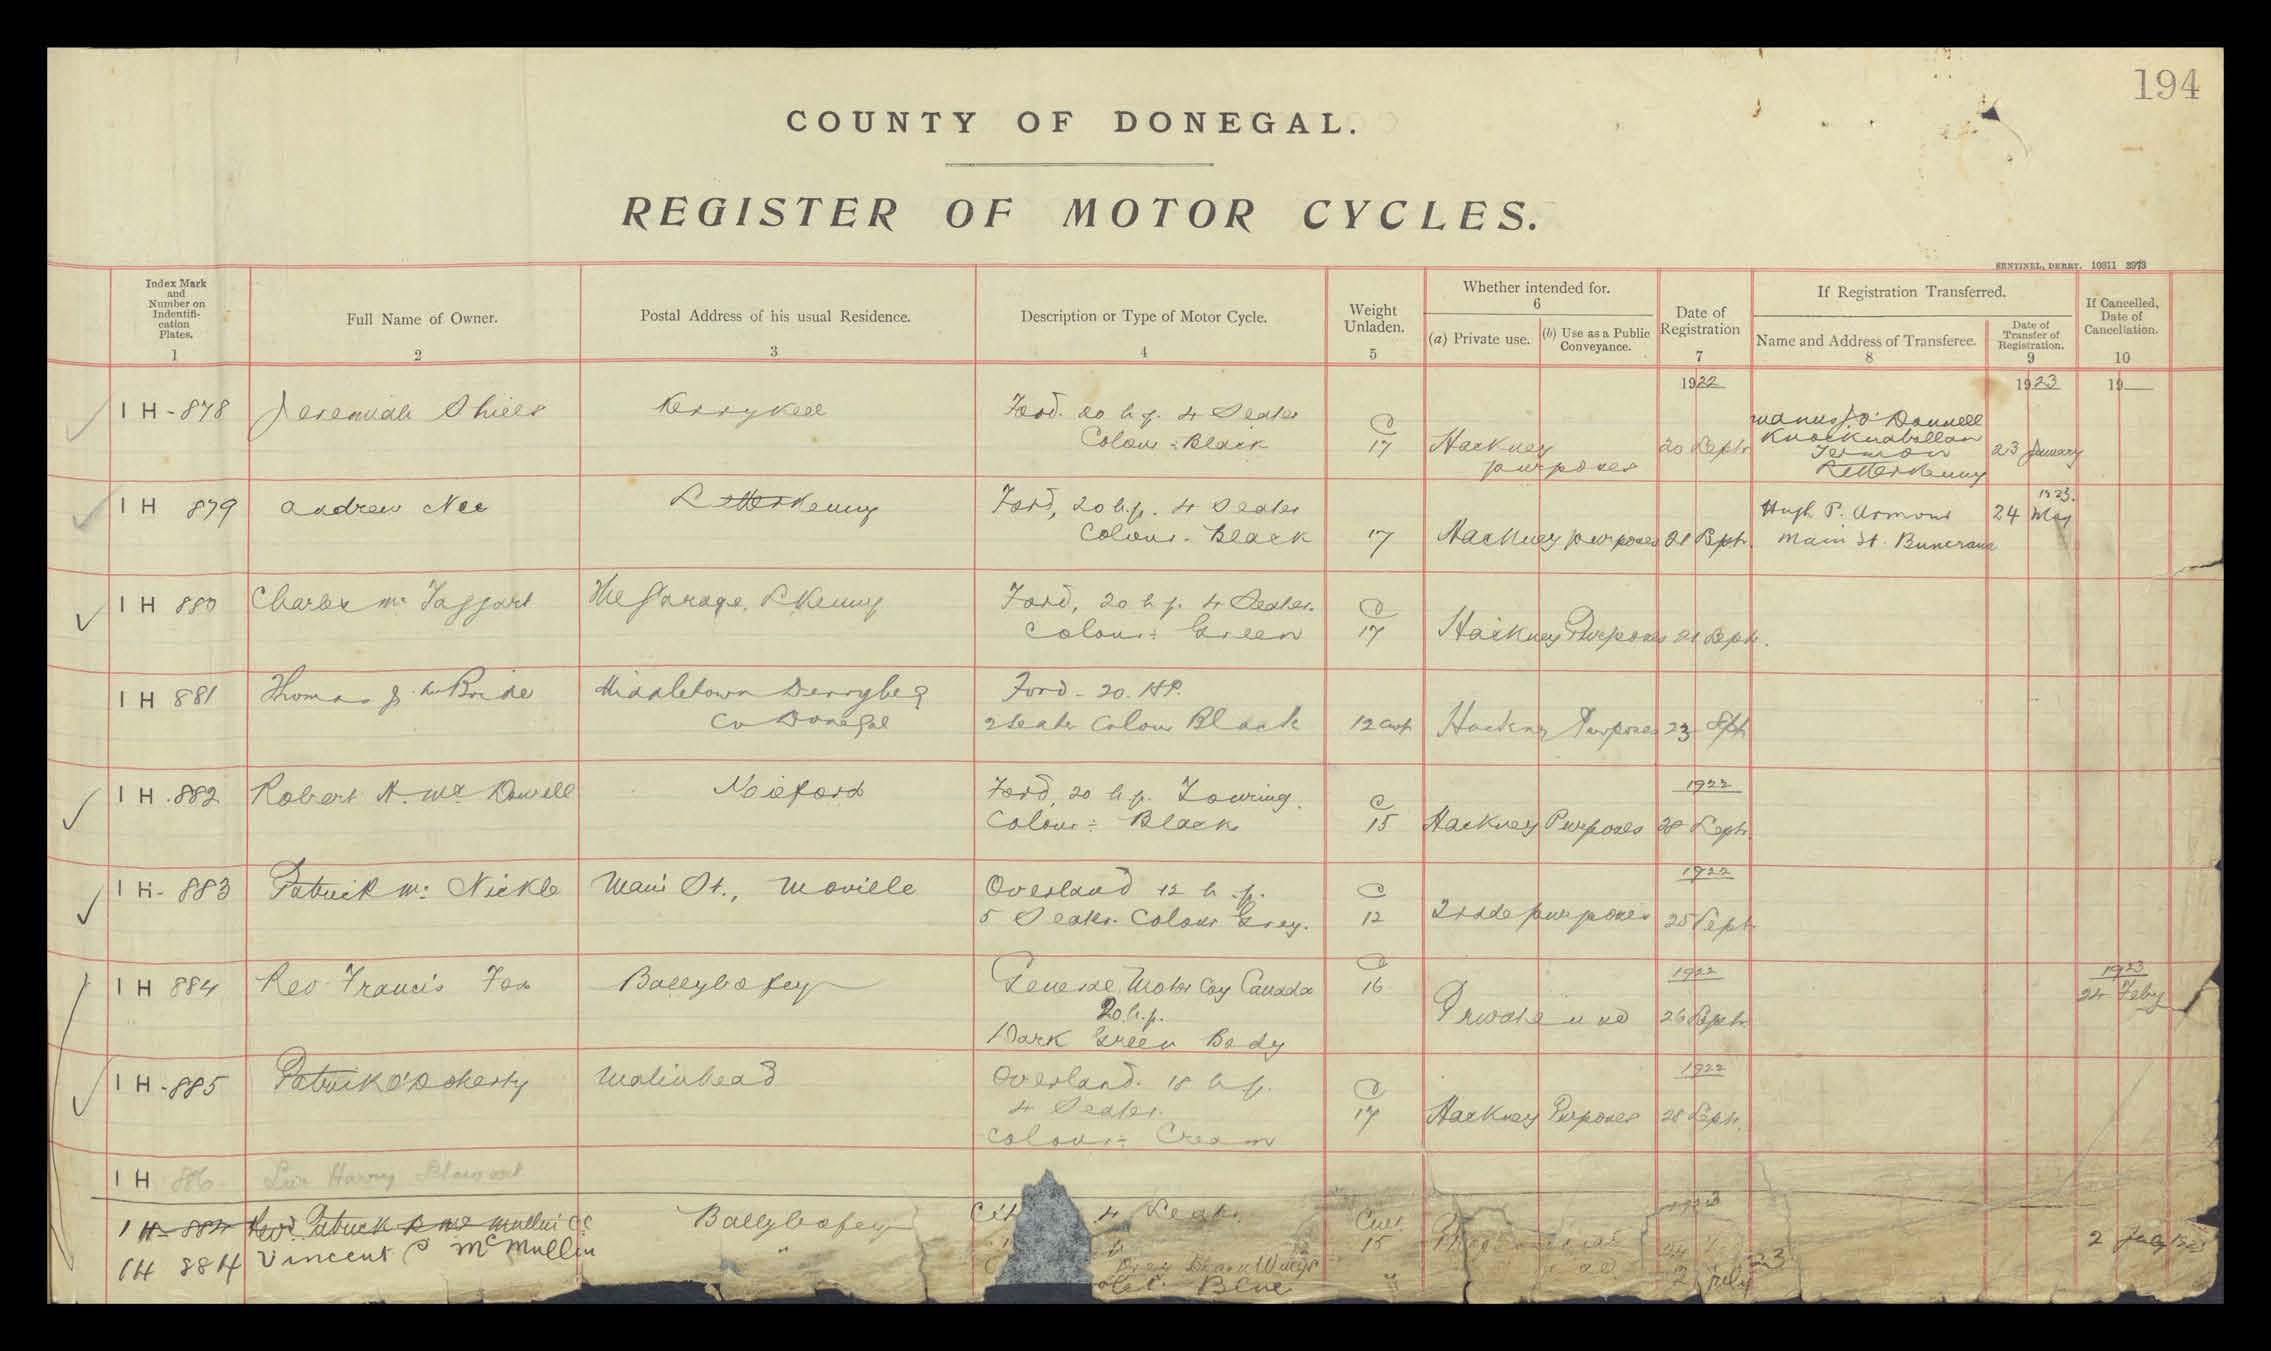 194
COUNTY OF DONEGAL.
REGISTER OF MOTOR CYCLES.
SENTINEL, DERRY. 10311 3973
Index Mark and Number on Indentifi-cation Plates. 1
Full Name of Owner. 2
Postal Address of his usual Residence. 3
Description or Type of Motor Cycle. 4
Weight Unladen. 5
Whether intended for. 6
(a) Private use.
(b) Use as a Public Conveyance.
Date of Registration 7
If Registration Transferred.
Name and Address of Transferee. 8
Date of Transfer of Registration. 9
If Cancelled, Date of Cancellation. 10
1922 1923 19
I H - 878 Jeremiah Shiels Kerrykeel Ford. 20 h.p. 4 Seater
Colour :- Black C 17 Hackney purposes 20 Septr
Manus J. O'Donnell
Knocknabollan
Termon
Letterkenny
23 January
I H 879 Andrew Nee Letterkenny Ford, 20 h.p. 4 Seater
Colour - Black 17 Hackney purposes 21 Septr.
Hugh P. Armour
Main St. Buncrana
1923.
24 May
I H 880 Charles Mc Taggart The Garage, L'Kenny Ford, 20 h.p. 4 Seater.
Colour :- Green C 17 Hackney Purposes 21 Septr.
I H 881 Thomas J. McBride Middletown Derrybeg
Co Donegal
Ford - 20. HP.
2 Seater Colour Black 12 cwt Hackney Purposes 23 Sept
I H . 882 Robert A. Mc Dowell Ford, 20 h.p. Touring.
Colour :- Black C 15 Hackney Purposes 1922
28 Septr.
I H - 883 Patrick Mc Nickle Main St., Moville Overland 12 h.p.
5 Seater. Colour Grey. C 12 Trade purposes 1922
25 Septr.
I H 884 Rev Francis Fox Ballybofey General Motor Coy Canada
20 h.p.
Dark Green Body
C 16 Private use 1922
26 Septr.
1923
24 Feby
I H - 885 Patrick O'Doherty Malinhead Overland. 18 h.p.
4 Seater.
Colour :- Cream C 17 Hackney Purposes 1922
28 Septr.
I H 886 Sir Harry Stewart
I H 884 Revd. Patrick Mc Mullin CC Ballybofey 4 Seater
Cwt
15
1923
2 July
IH 884 Vincent P McMullin " Blue " 2 July 23